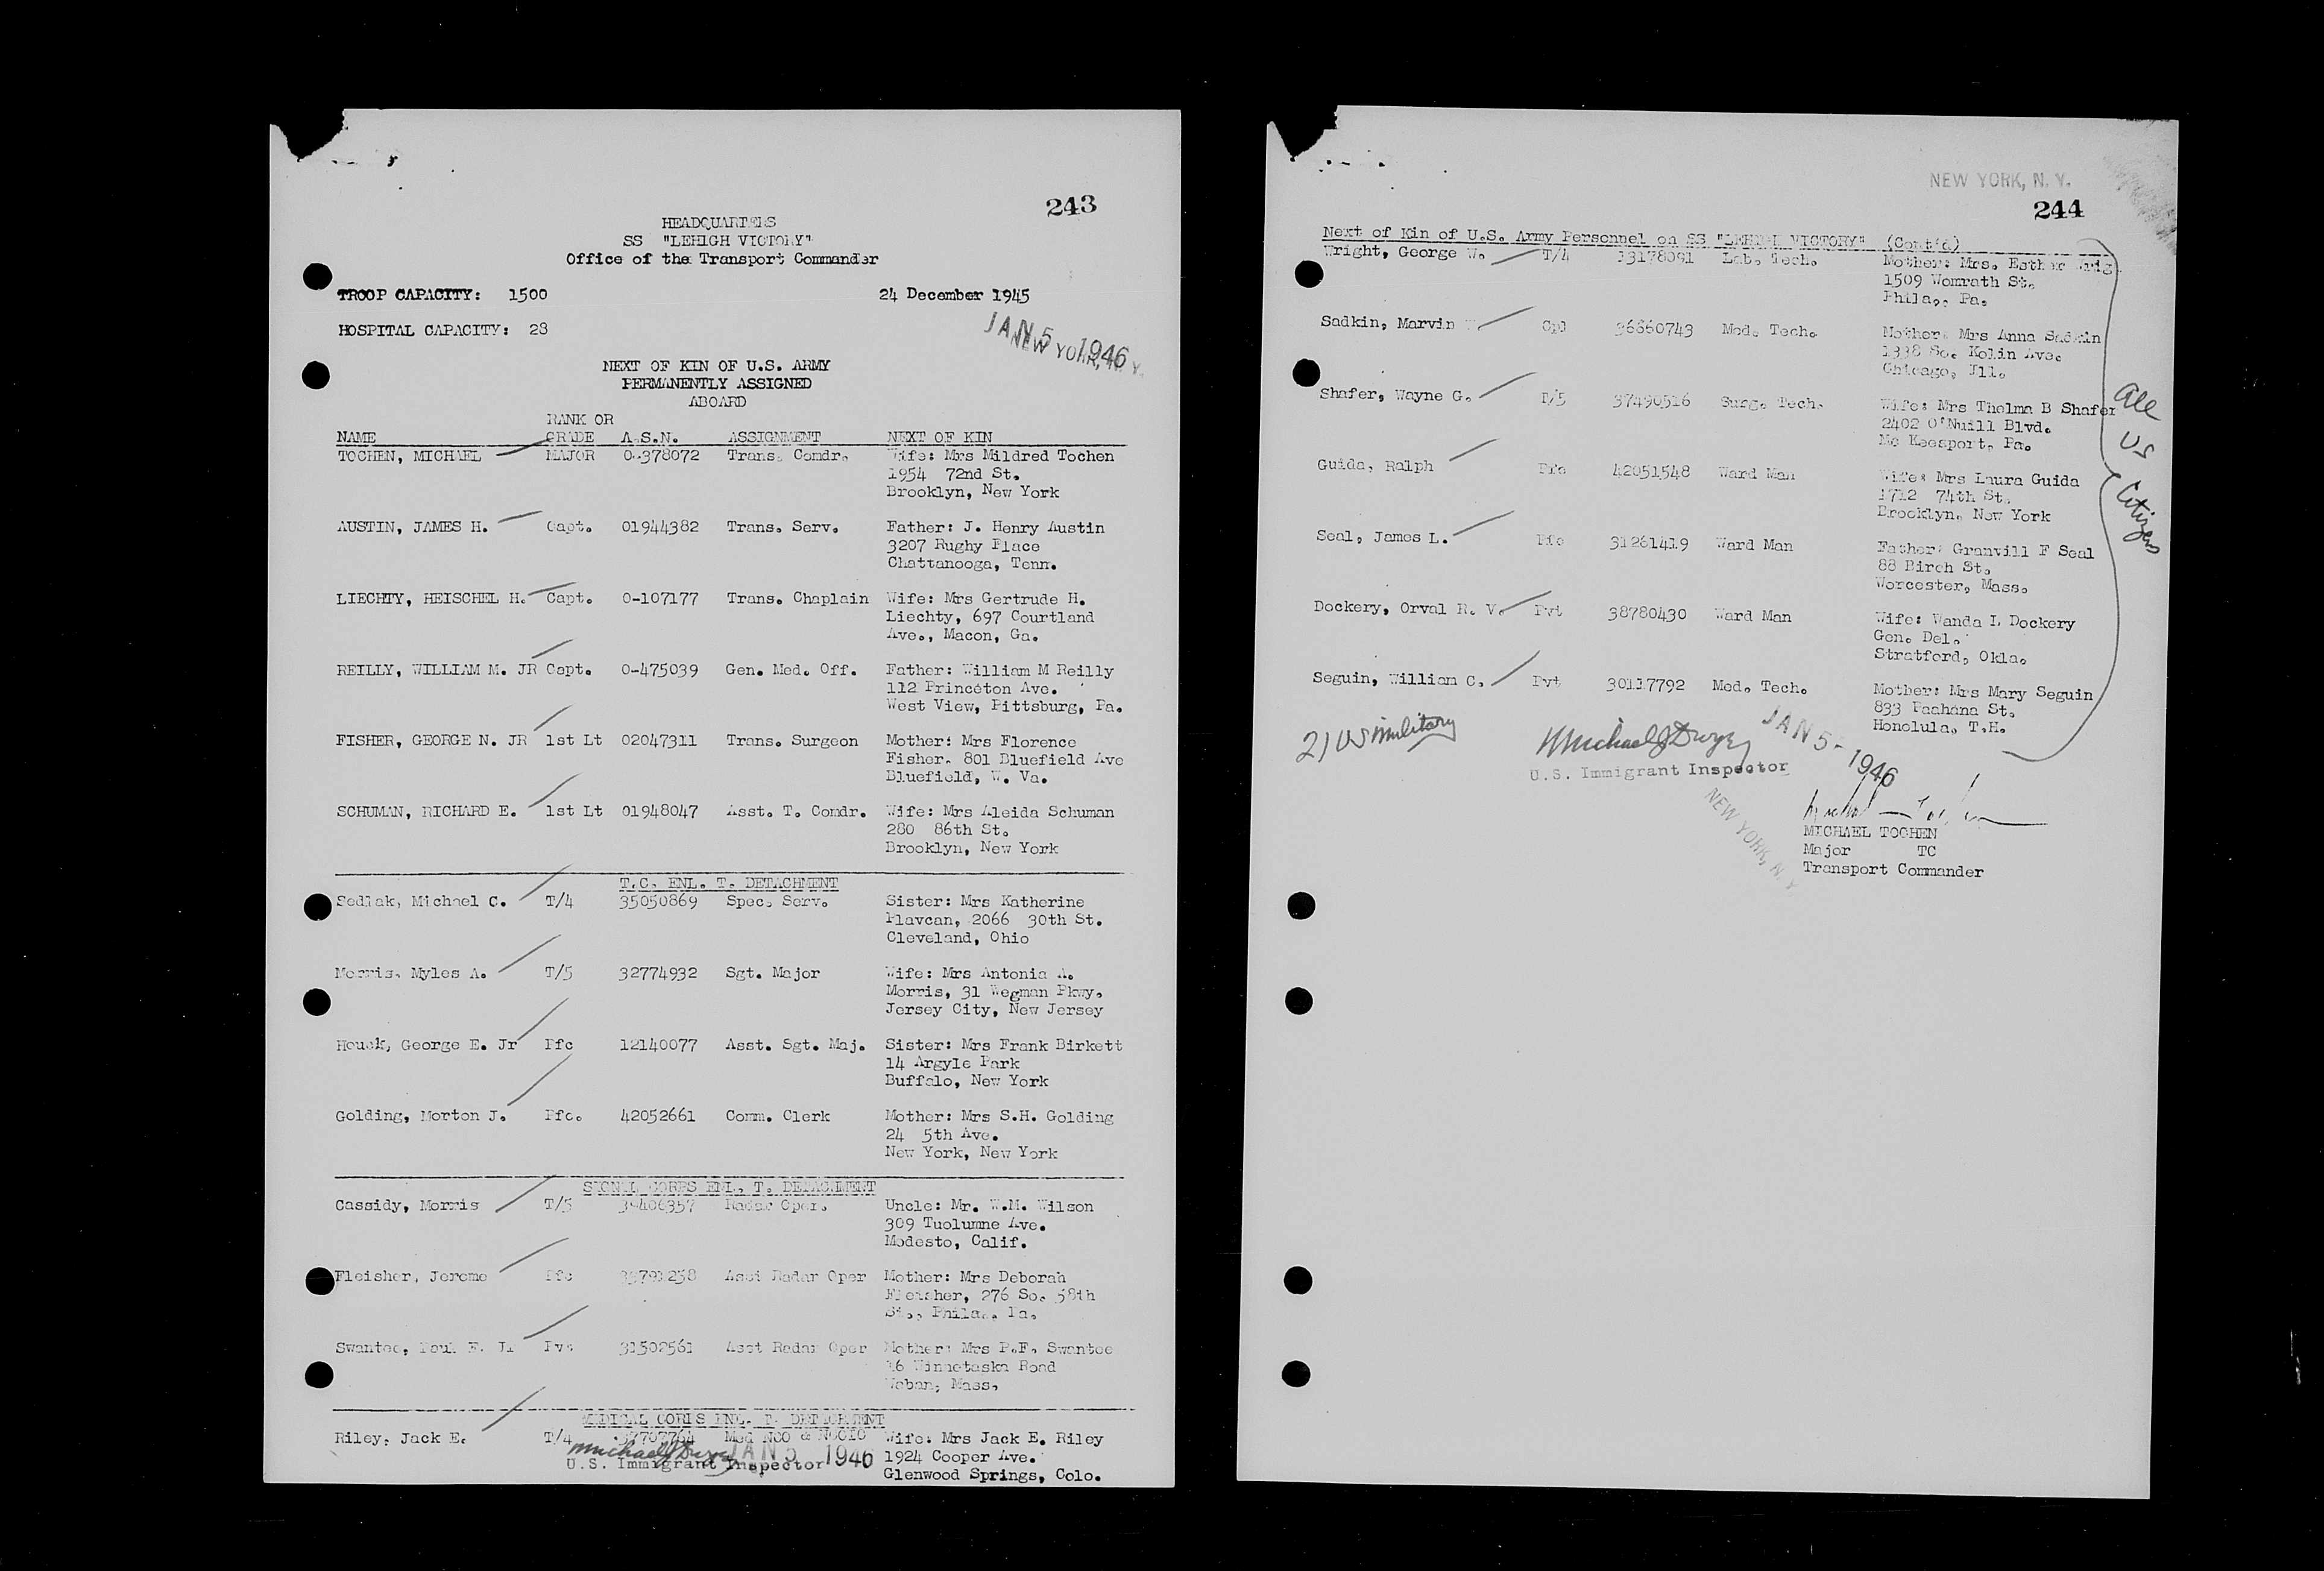 243
HEADQUARTERS
SS "LEHIGH VICTORY"
Office of the Transport Commander
TROOP CAPACITY: 1500 24 December 1945
HOSPITAL CAPACITY: 28
JAN 5 1946
NEW YORK, N. Y.
NEXT OF KIN OF U.S. ARMY
PERMANENTLY ASSIGNED
ABOARD
RANK OR
NAME GRADE A.S.N. ASSIGNMENT NEXT OF KIN
TOCHEN, MICHAEL MAJOR 0-378072 Trans. Comdr. Wife: Mrs Mildred Tochen
1954 72nd St.
Brooklyn, New York
AUSTIN, JAMES H. Capt. 01944382 Trans. Serv. Father: J. Henry Austin
3207 Rughy Place
Chattanooga, Tenn.
LIECHTY, HEISCHEL H. Capt. 0-107177 Trans. Chaplain Wife: Mrs Gertrude H.
Liechty, 697 Courtland
Ave., Macon, Ga.
REILLY, WILLIAM M. JR Capt. 0-475039 Gen. Med. Off. Father: William M Reilly
112 Princeton Ave.
West View, Pittsburg, Pa.
FISHER, GEORGE N. JR 1st Lt 02047311 Trans. Surgeon Mother: Mrs Florence
Fisher. 801 Bluefield Ave
Bluefield, W. Va.
SCHUMAN, RICHARD E. 1st Lt 01948047 Asst. T. Comdr. Wife: Mrs Aleida Schuman
280 86th St.
Brooklyn, New York
T.C. ENL. T. DETACHMENT
Sedlak, Michael C. T/4 35050869 Spec. Serv. Sister: Mrs Katherine
Plavcan, 2066 30th St.
Cleveland, Ohio
Morris, Myles A. T/5 32774932 Sgt. Major Wife: Mrs Antonia A.
Morris, 31 Wegman Pkwy.
Jersey City, New Jersey
Houck, George E. Jr Pfc 12140077 Asst. Sgt. Maj. Sister: Mrs Frank Birkett
14 Argyle Park
Buffalo, New York
Golding, Morton J. Pfc. 42052661 Comm. Clerk Mother: Mrs S.H. Golding
24 5th Ave.
New York, New York
SIGNAL CORPS ENL. T. DETACHMENT
Cassidy, Morris T/5 Radar Oper. Uncle: Mr. W.M. Wilson
309 Tuolumne Ave.
Modesto, Calif.
Fleisher, Jerome Pfc Asst Radar Oper Mother: Mrs Deborah
Fleisher, 276 So. 58th
St., Phila., Pa.
Swantee, Paul F. Jr Pvt 31502561 Asst Radar Oper Mother: Mrs P.F. Swantee
Winnetaska Road
Waban, Mass.
MEDICAL CORPS ENL. T. DETACHMENT
Riley, Jack E. T/4 37707764 Med NCO & NCOIC Wife: Mrs Jack E. Riley
Michael J Dwyer JAN 5 1946 1924 Cooper Ave.
U.S. Immigrant Inspector Glenwood Springs, Colo.
NEW YORK, N. Y.
244
Next of Kin of U.S. Army Personnel on SS "LEHIGH VICTORY" (Cont'd)
Wright, George W. T/4 13178091 Lab. Tech. Mother: Mrs. Esther Wrig
1509 Womrath St.
Phila., Pa.
Sadkin, Marvin Cpl 36660743 Med. Tech. Mother: Mrs Anna Sadkin
1338 So. Kolin Ave.
Chicago, Ill.
Shafer, Wayne G. T/5 37490516 Surg. Tech. Wife: Mrs Thelma B Shafer
2402 O'Nuill Blvd.
Mc Keesport, Pa.
Guida, Ralph Pfc 42051548 Ward Man Wife: Mrs Laura Guida
1712 74th St.
Brooklyn, New York
Seal, James L. Pfc 31261419 Ward Man Father: Granvill F Seal
88 Birch St.
Worcester, Mass.
Dockery, Orval R. V. Pvt 38780430 Ward Man Wife: Wanda L Dockery
Gen. Del.
Stratford, Okla.
Seguin, William C. Pvt 30117792 Med. Tech. Mother: Mrs Mary Seguin
833 Paahana St.
Honolulu, T.H.
all
US
Citizens
21 US military
Michael J Dwyer
U.S. Immigrant Inspector
JAN 5 - 1946
NEW YORK, N. Y
MICHAEL TOCHEN
Major TC
Transport Commander